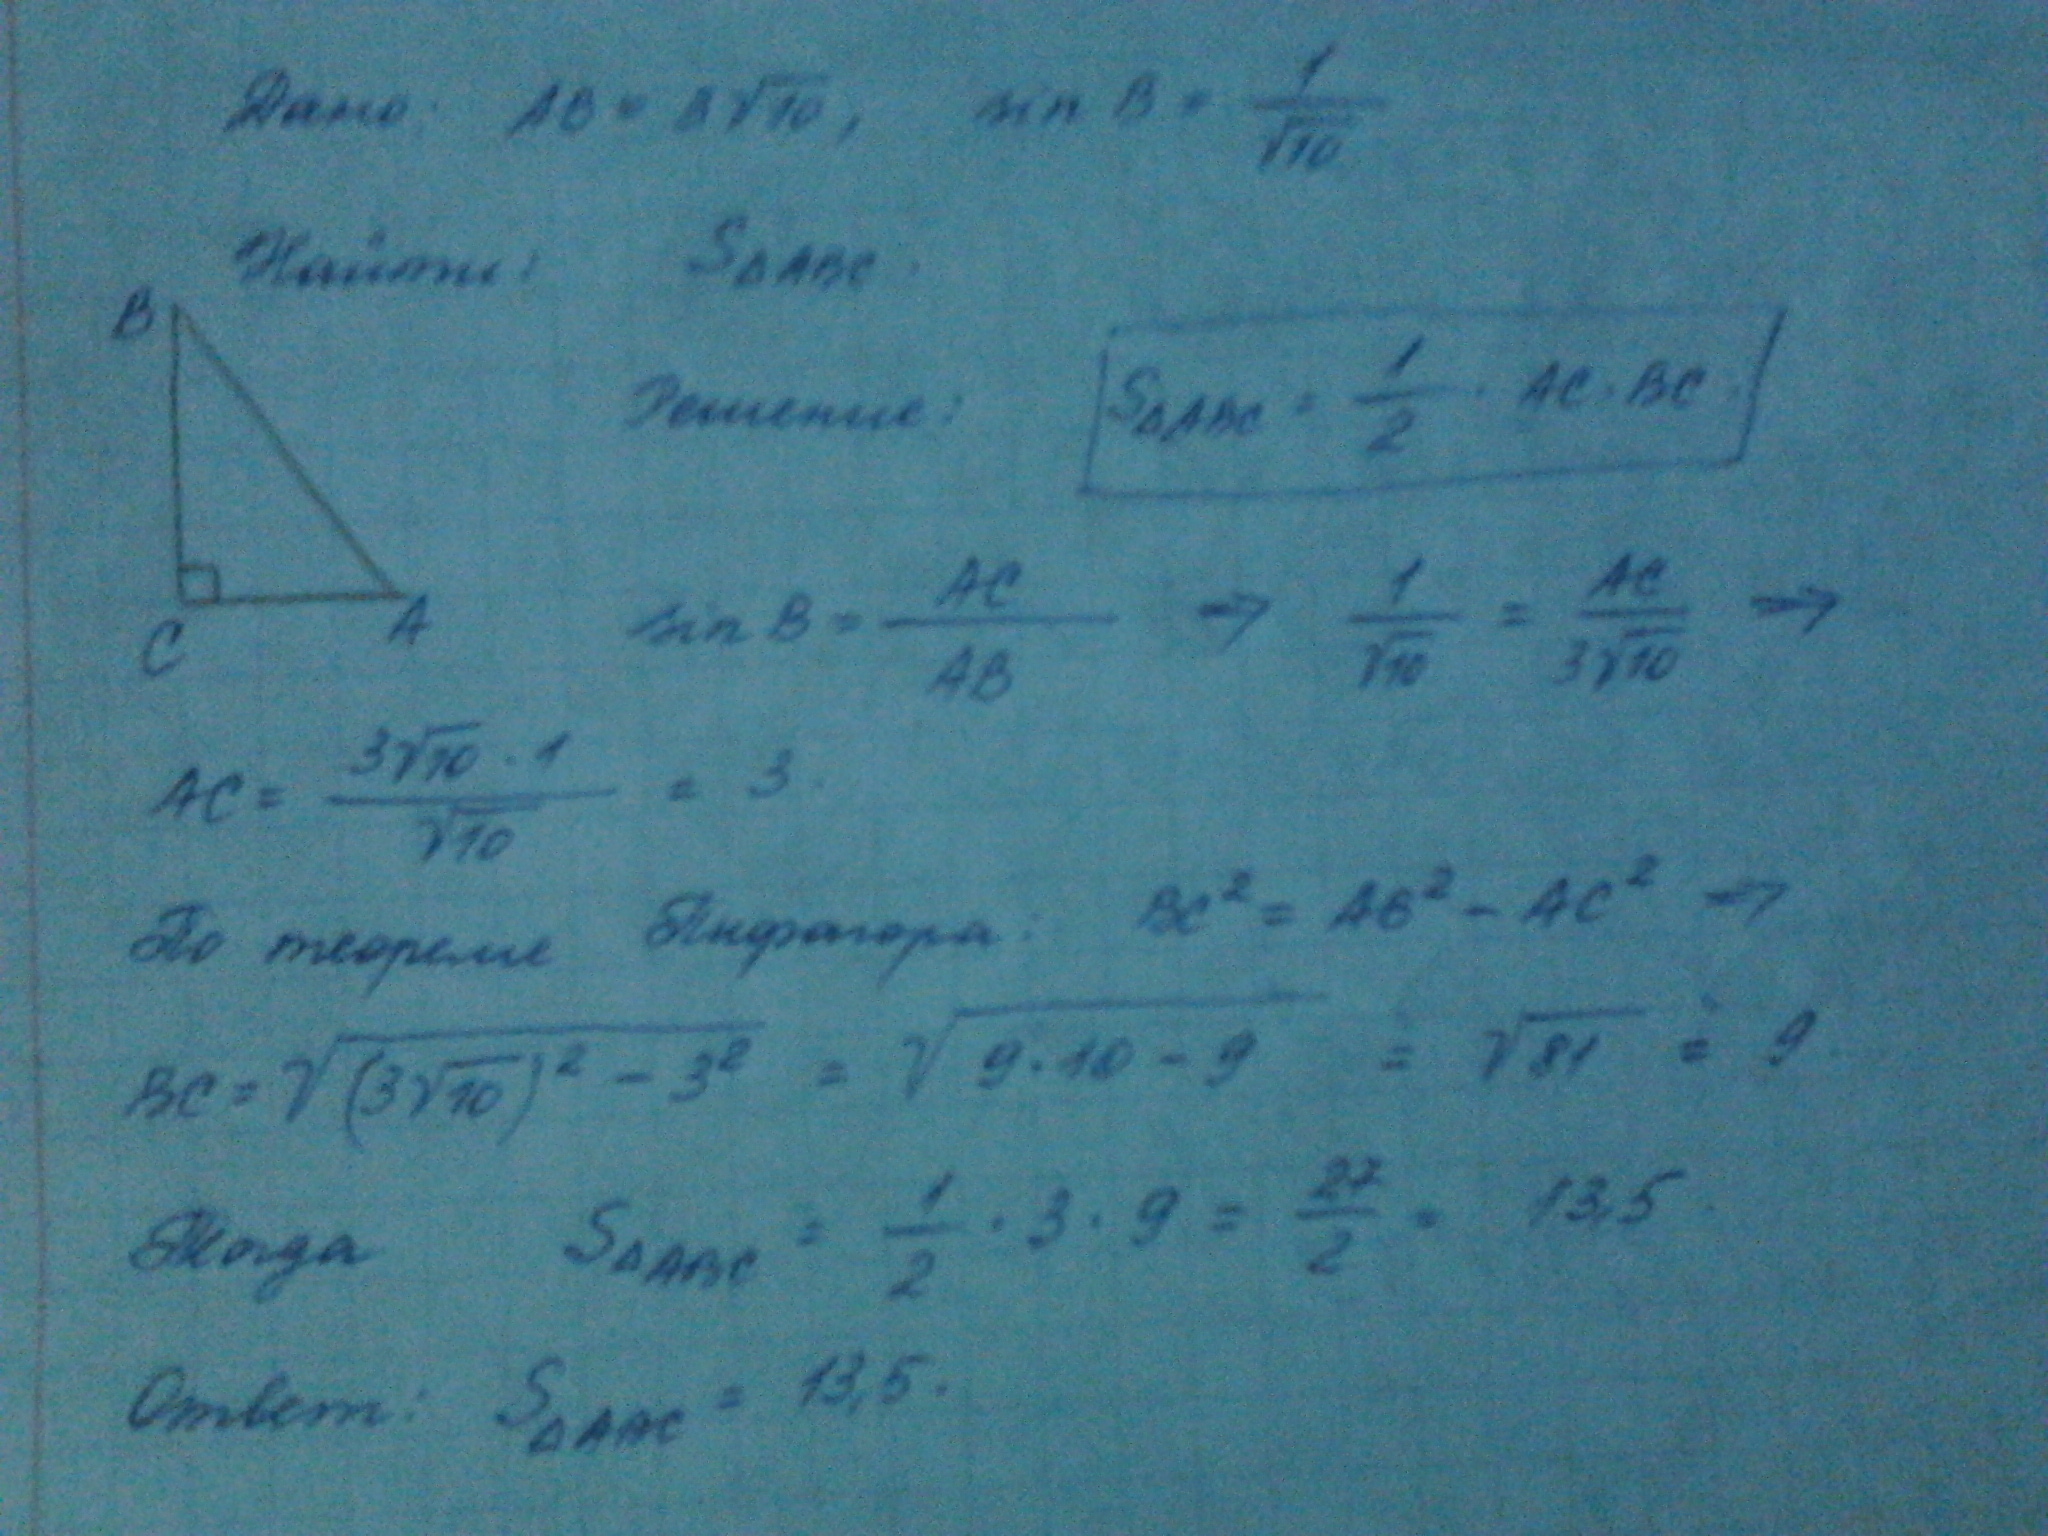 Дано: AB = 3√10, sin B = 1/√10
Найти: S△ABC.
B
Решение: S△ABC = 1/2 · AC · BC.
C A
sin B = AC/AB ⇒ 1/√10 = AC/3√10 ⇒
AC = 3√10 · 1/√10 = 3.
По теореме Пифагора: BC² = AB² − AC² ⇒
BC = √((3√10)² − 3²) = √(9·10 − 9) = √81 = 9
Тогда S△ABC = 1/2 · 3 · 9 = 27/2 = 13,5.
Ответ: S△ABC = 13,5.